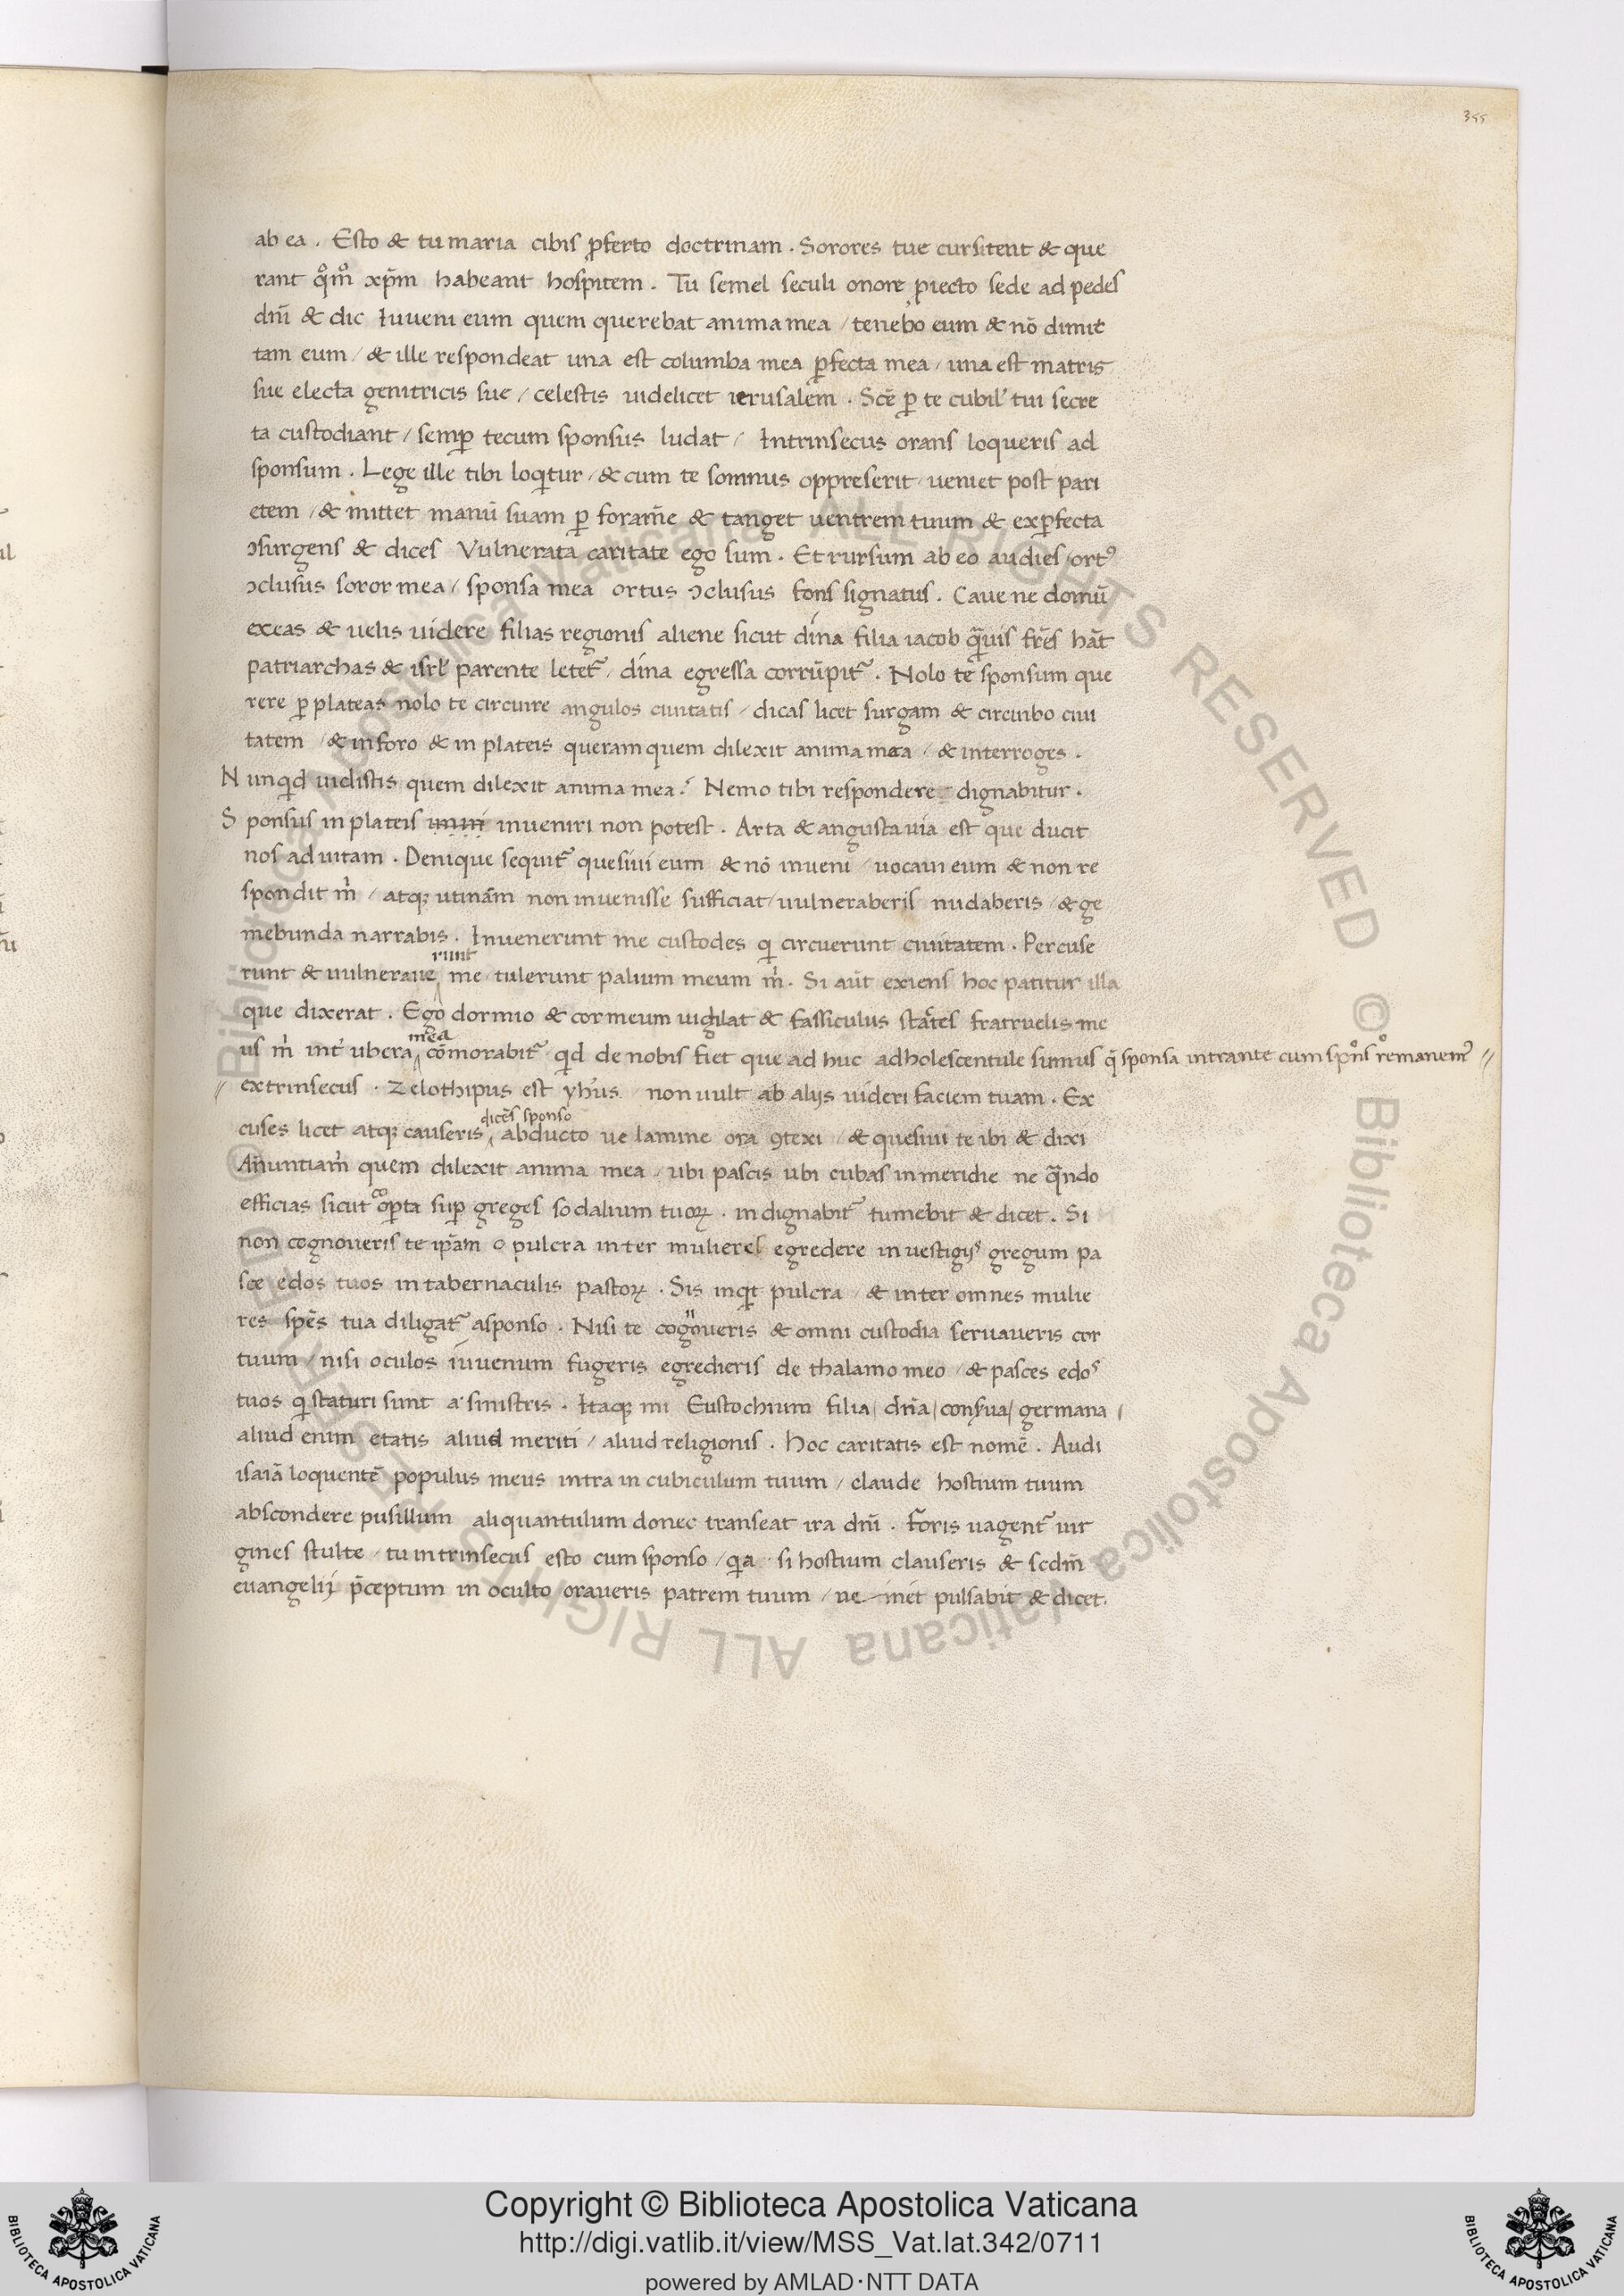 355
ab ea . Esto & tu maria cibis p̱ferto doctrinam . Sorores tue cursitent & que
rant qͦmͦ xp̄m habeant hospitem . Tu semel seculi onore piecto sede ad pedes
dn̄i & dic Inveni eum quem querebat anima mea / tenebo eum & nō dimit
tam eum / & ille respondeat una est columba mea p̱fecta mea / una est matris
sue electa genitricis sue / celestis uidelicet ierusalem . Scē p̱ te cubil' tui secre
ta custodiant / semp̱ tecum sponsus ludat / Intrinsecus orans loqueris ad
sponsum . Lege ille tibi loqitur / & cum te somnus oppreserit / ueniet post pari
etem / & mittet manū suam p̱ foram̄e & tanget uentrem tuum & exp̱fecta
ɔsurgens & dices Vulnerata caritate ego sum . Et rursum ab eo audies / ortꝰ
ɔclusus soror mea / sponsa mea ortus ɔclusus fons signatus . Caue ne domū
exeas & uelis uidere filias regionis aliene sicut dina filia iacob qͣuis fr̄es hāt
patriarchas & isrl' parente letet᷑ / dina egressa corrūpit᷑ . Nolo te sponsum que
rere p̱ plateas nolo te circuire angulos ciuitatis / dicas licet surgam & circuibo ciui
tatem / & in foro & in plateis queram quem dilexit anima mea / & interroges .
Nunqid uidistis quem dilexit anima mea ? Nemo tibi respondere dignabitur .
Sponsus in plateis inueniri non potest . Arta & angusta uia est que ducit
nos ad uitam . Denique sequit᷑ quesiui eum & nō inueni / uocaui eum & non re
spondit m̍ / atqꝫ utinām non inuenisse sufficiat / uulneraberis nudaberis / & ge
mebunda narrabis . Inuenerunt me custodes qi circuerunt ciuitatem . Percuse
runt
runt & uulneraue me / tulerunt palium meum m̍ . Si aūt exiens hoc patitur illa
que dixerat . Ego dormio & cor meum uigilat & fasciculus statēs fratruelis me
mea
us m̍ int᷑ ubera cōmorabit᷑ qid de nobis fiet que ad huc adholescentule sumus q̄ sponsa intrante cum spōns remanemꝰ //
// extrinsecus . Zelothipus est yh̄us / non uult ab alijs uideri faciem tuam . Ex
dicēs sponso
cuses licet atqꝫ causeris abducto ue lamine ora ꝯtexi / & quesiui te ibi & dixi
An̄untiam̍ quem dilexit anima mea / ubi pascis ubi cubas in meridie ne qͣndo
co
efficias sicut op̱ta sup̱ greges sodalium tuoꝝ . indignabit᷑ tumebit & dicet . Si
non cognoueris te ip̄am o pulcra inter mulieres egredere in uestigijs gregum pa
sce edos tuos in tabernaculis pastoꝝ . Sis inqit pulcra / & inter omnes mulie
res spēs tua diligat᷑ a sponso . Nisi te cognoueris & omni custodia seruaueris cor
tuum / nisi oculos iuuenum fugeris egredieris de thalamo meo / & pasces edos
tuos qi staturi sunt a sinistris . Itaqꝫ mi Eustochium filia / dn̄a / conserua / germana /
aliud enim etatis aliud meriti / aliud religionis . Hoc caritatis est nomē . Audi
isaiā loquentē populus meus intra in cubiculum tuum / claude hostium tuum
abscondere pusillum aliquantulum donec transeat ira dn̄i . Foris uagent᷑ uir
gines stulte / tu intrinsecus esto cum sponso / qia si hostium clauseris & scdm̄
euangelij p̄ceptum in oculto oraueris patrem tuum / ue-niet pulsabit & dicet.
© Biblioteca Apostolica Vaticana ALL RIGHTS RESERVED © Biblioteca Apostolica Vaticana ALL RIGHTS RESERVED
BIBLIOTECA APOSTOLICA VATICANA
Copyright © Biblioteca Apostolica Vaticana
http://digi.vatlib.it/view/MSS_Vat.lat.342/0711
powered by AMLAD·NTT DATA
BIBLIOTECA APOSTOLICA VATICANA